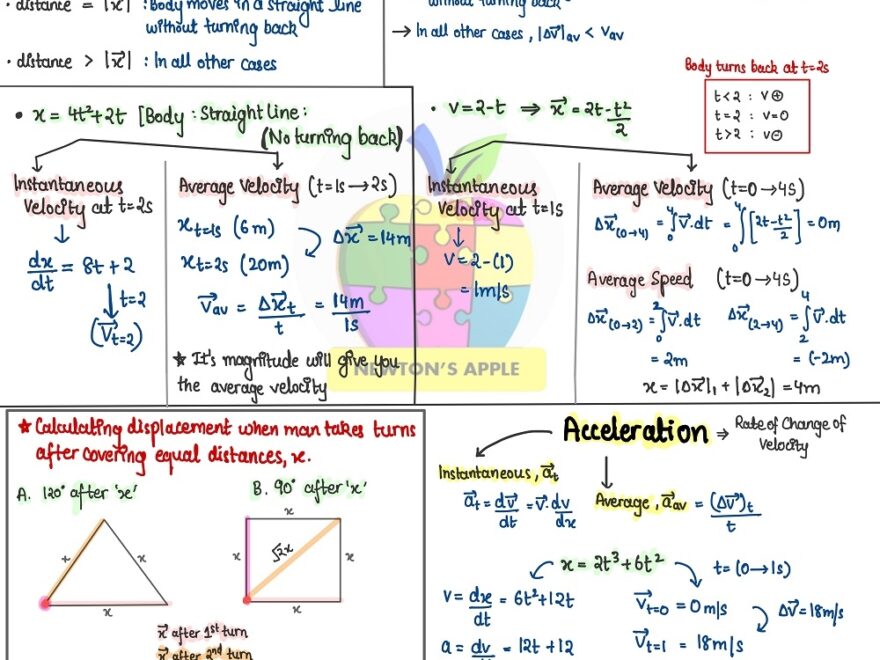 • distance = |x⃗| : Body moves in a straight line
without turning back
• distance > |x⃗| : In all other cases
without turning back
→ In all other cases, |Δv⃗|av < vav
Body turns back at t=2s
t<2 : v⊕
t=2 : v=0
t>2 : v⊖
• x = 4t²+2t [Body : Straight line :
(No turning back)
Instantaneous
Velocity at t=2s
↓
dx/dt = 8t+2
↓ t=2
(V⃗t=2)
Average Velocity (t=1s → 2s)
xt=1s (6m)
xt=2s (20m)
Δx⃗ = 14m
V⃗av = Δx⃗t/t = 14m/1s
★ It's magnitude will give you
the average velocity
• v = 2-t ⇒ x⃗ = 2t-t²/2
Instantaneous
Velocity at t=1s
↓
V = 2-(1)
= 1m/s
Average Velocity (t=0→4s)
Δx⃗(0→4) = ∫₀⁴ V⃗.dt = ∫₀⁴ [2t-t²/2] = 0m
Average Speed (t=0→4s)
Δx⃗(0→2) = ∫₀² V⃗.dt
= 2m
Δx⃗(2→4) = ∫₂⁴ V⃗.dt
= (-2m)
x = |Δx⃗|₁ + |Δx⃗₂| = 4m
NEWTON'S APPLE
★ Calculating displacement when man takes turns
after covering equal distances, x.
A. 120° after 'x'
x
x
x
B. 90° after 'x'
x
x
√2x
x
x
x⃗ after 1st turn
x⃗ after 2nd turn
Acceleration ⇒ Rate of Change of
Velocity
Instantaneous, a⃗t
a⃗t = dv⃗/dt = v⃗.dv/dx
Average, a⃗av = (Δv⃗)t/t
x = 2t³+6t²
t=(0→1s)
V = dx/dt = 6t²+12t
a = dv/dt = 12t+12
V⃗t=0 = 0m/s
V⃗t=1 = 18m/s
ΔV⃗ = 18m/s